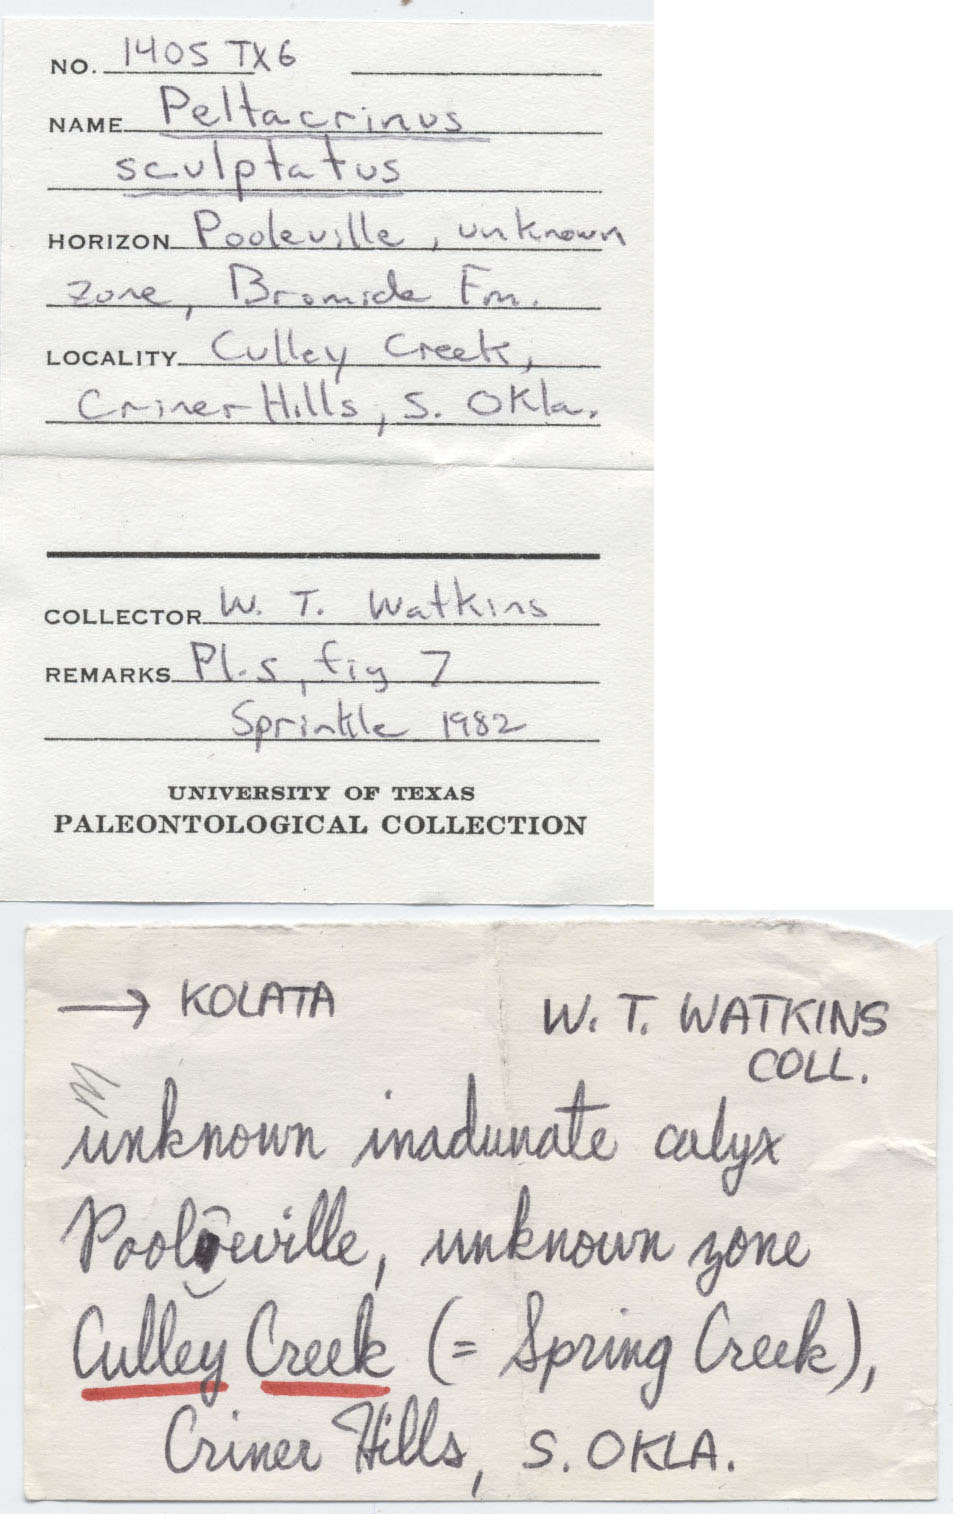 NO. 1405 TX6
NAME Peltacrinus
sculptatus
HORIZON Pooleville, unknown
zone, Bromide Fm.
LOCALITY Culley Creek,
Criner Hills, S. Okla.
COLLECTOR W. T. Watkins
REMARKS Pl. 5, fig 7
Sprinkle 1982
UNIVERSITY OF TEXAS
PALEONTOLOGICAL COLLECTION
→ KOLATA
W. T. WATKINS
COLL.
unknown inadunate calyx
Pooleville, unknown zone
Culley Creek (= Spring Creek),
Criner Hills, S. OKLA.